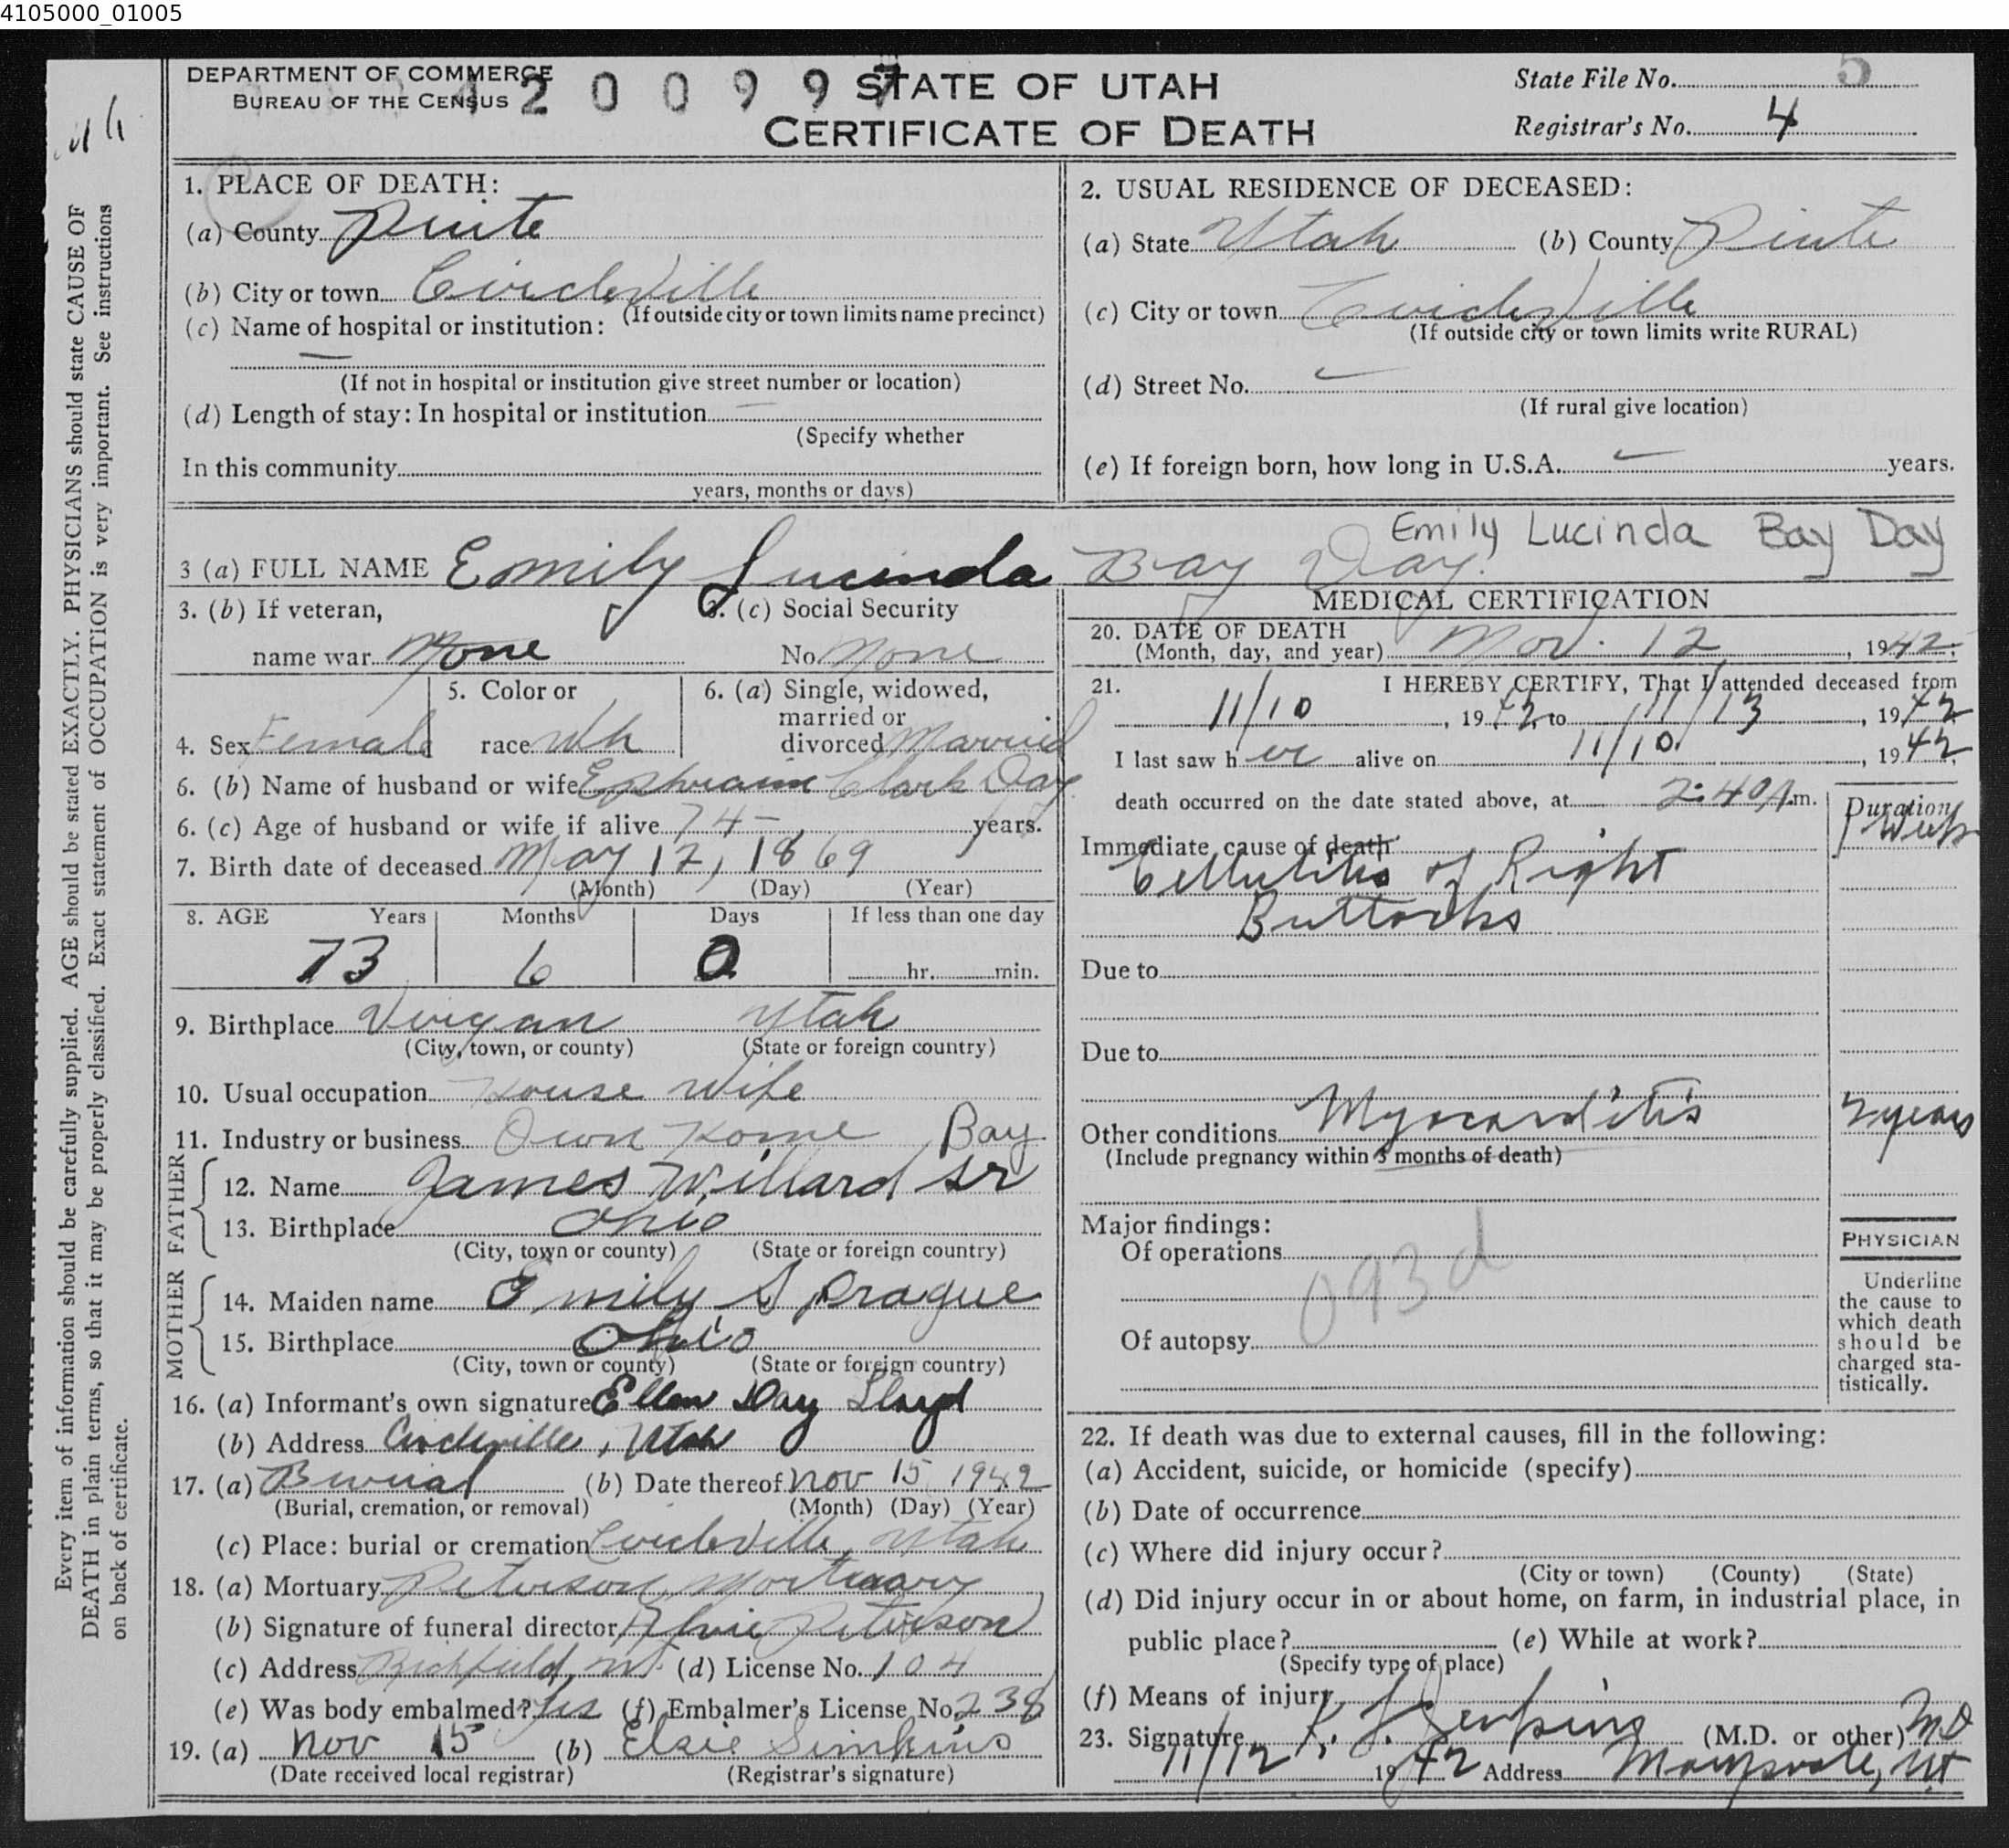 4105000_01005
DEPARTMENT OF COMMERCE
BUREAU OF THE CENSUS
4 2 0 0 9 9 7
STATE OF UTAH
CERTIFICATE OF DEATH
State File No. 5
Registrar's No. 4
1. PLACE OF DEATH:
(a) County Piute
(b) City or town Circleville
(If outside city or town limits name precinct)
(c) Name of hospital or institution:
—
(If not in hospital or institution give street number or location)
(d) Length of stay: In hospital or institution —
(Specify whether
In this community
years, months or days)
2. USUAL RESIDENCE OF DECEASED:
(a) State Utah (b) County Piute
(c) City or town Circleville
(If outside city or town limits write RURAL)
(d) Street No.
(If rural give location)
(e) If foreign born, how long in U.S.A. years.
Emily Lucinda Bay Day
3 (a) FULL NAME Emily Lucinda Bay Day
3. (b) If veteran,
name war None
3. (c) Social Security
No None
4. Sex Female
5. Color or
race Wh
6. (a) Single, widowed,
married or
divorced Married
6. (b) Name of husband or wife Ephraim Clark Day
6. (c) Age of husband or wife if alive 74 years.
7. Birth date of deceased May 12, 1869
(Month) (Day) (Year)
8. AGE Years Months Days If less than one day
73 6 0 hr. min.
9. Birthplace Virgan Utah
(City, town, or county) (State or foreign country)
10. Usual occupation House Wife
11. Industry or business Own Home
FATHER
12. Name James Willard Bay Sr
13. Birthplace Ohio
(City, town or county) (State or foreign country)
MOTHER
14. Maiden name Emily Sprague
15. Birthplace Ohio
(City, town or county) (State or foreign country)
16. (a) Informant's own signature Ellen Day
(b) Address Circleville, Utah
17. (a) Burial (b) Date thereof Nov 15 1942
(Burial, cremation, or removal) (Month) (Day) (Year)
(c) Place: burial or cremation Circleville, Utah
18. (a) Mortuary Peterson Mortuary
(b) Signature of funeral director Peterson
(c) Address Richfield, Ut. (d) License No. 104
(e) Was body embalmed? Yes (f) Embalmer's License No. 238
19. (a) Nov 15 (b) Elsie Simkins
(Date received local registrar) (Registrar's signature)
MEDICAL CERTIFICATION
20. DATE OF DEATH
(Month, day, and year) Nov. 12, 1942.
21. I HEREBY CERTIFY, That I attended deceased from
11/10, 1942, to 11/13, 1942
I last saw her alive on 11/10, 1942
death occurred on the date stated above, at 2:40 A.m.
Duration
Immediate cause of death
Cellulitis of Right
Buttocks
Due to
Due to
Other conditions Myocarditis 2 years
(Include pregnancy within 3 months of death)
Major findings:
Of operations
093d
Of autopsy
PHYSICIAN
Underline
the cause to
which death
should be
charged sta-
tistically.
22. If death was due to external causes, fill in the following:
(a) Accident, suicide, or homicide (specify)
(b) Date of occurrence
(c) Where did injury occur?
(City or town) (County) (State)
(d) Did injury occur in or about home, on farm, in industrial place, in
public place? (e) While at work?
(Specify type of place)
(f) Means of injury
23. Signature (M.D. or other) MD
11/12 1942 Address Marysvale, Ut
Every item of information should be carefully supplied. AGE should be stated EXACTLY. PHYSICIANS should state CAUSE OF
DEATH in plain terms, so that it may be properly classified. Exact statement of OCCUPATION is very important. See instructions
on back of certificate.